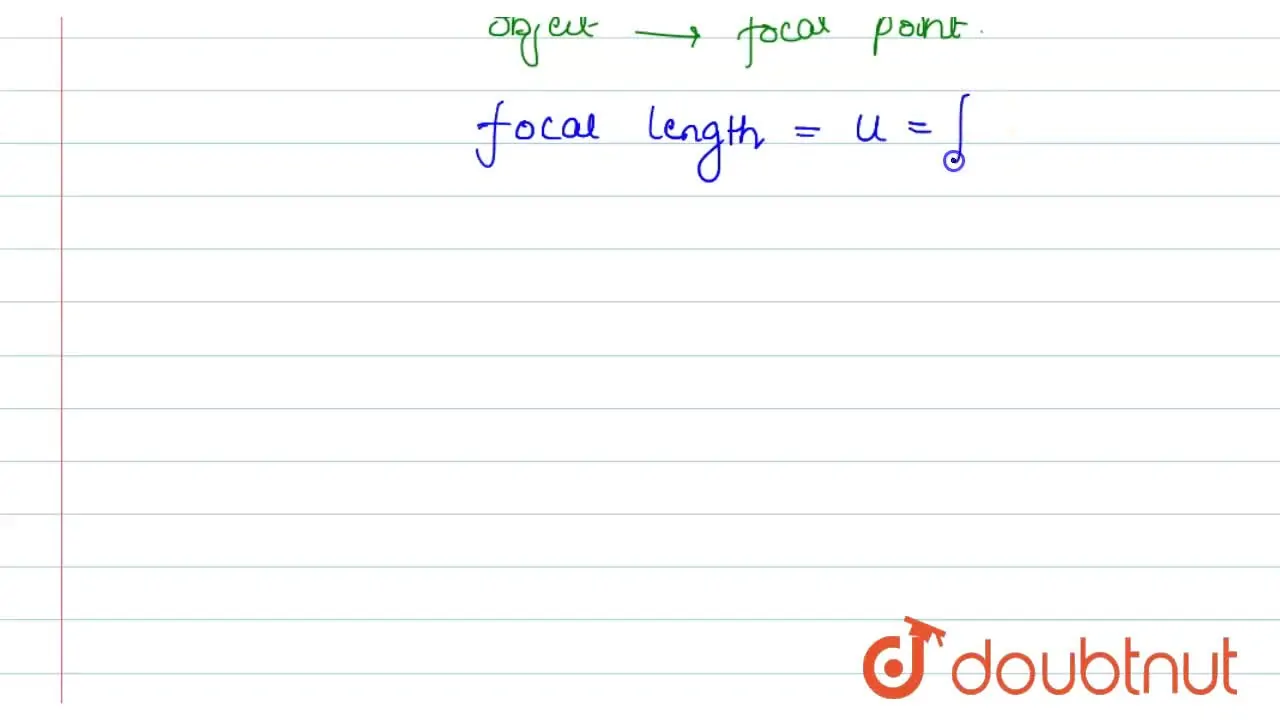 object → focal point.
focal length = u = f
doubtnut